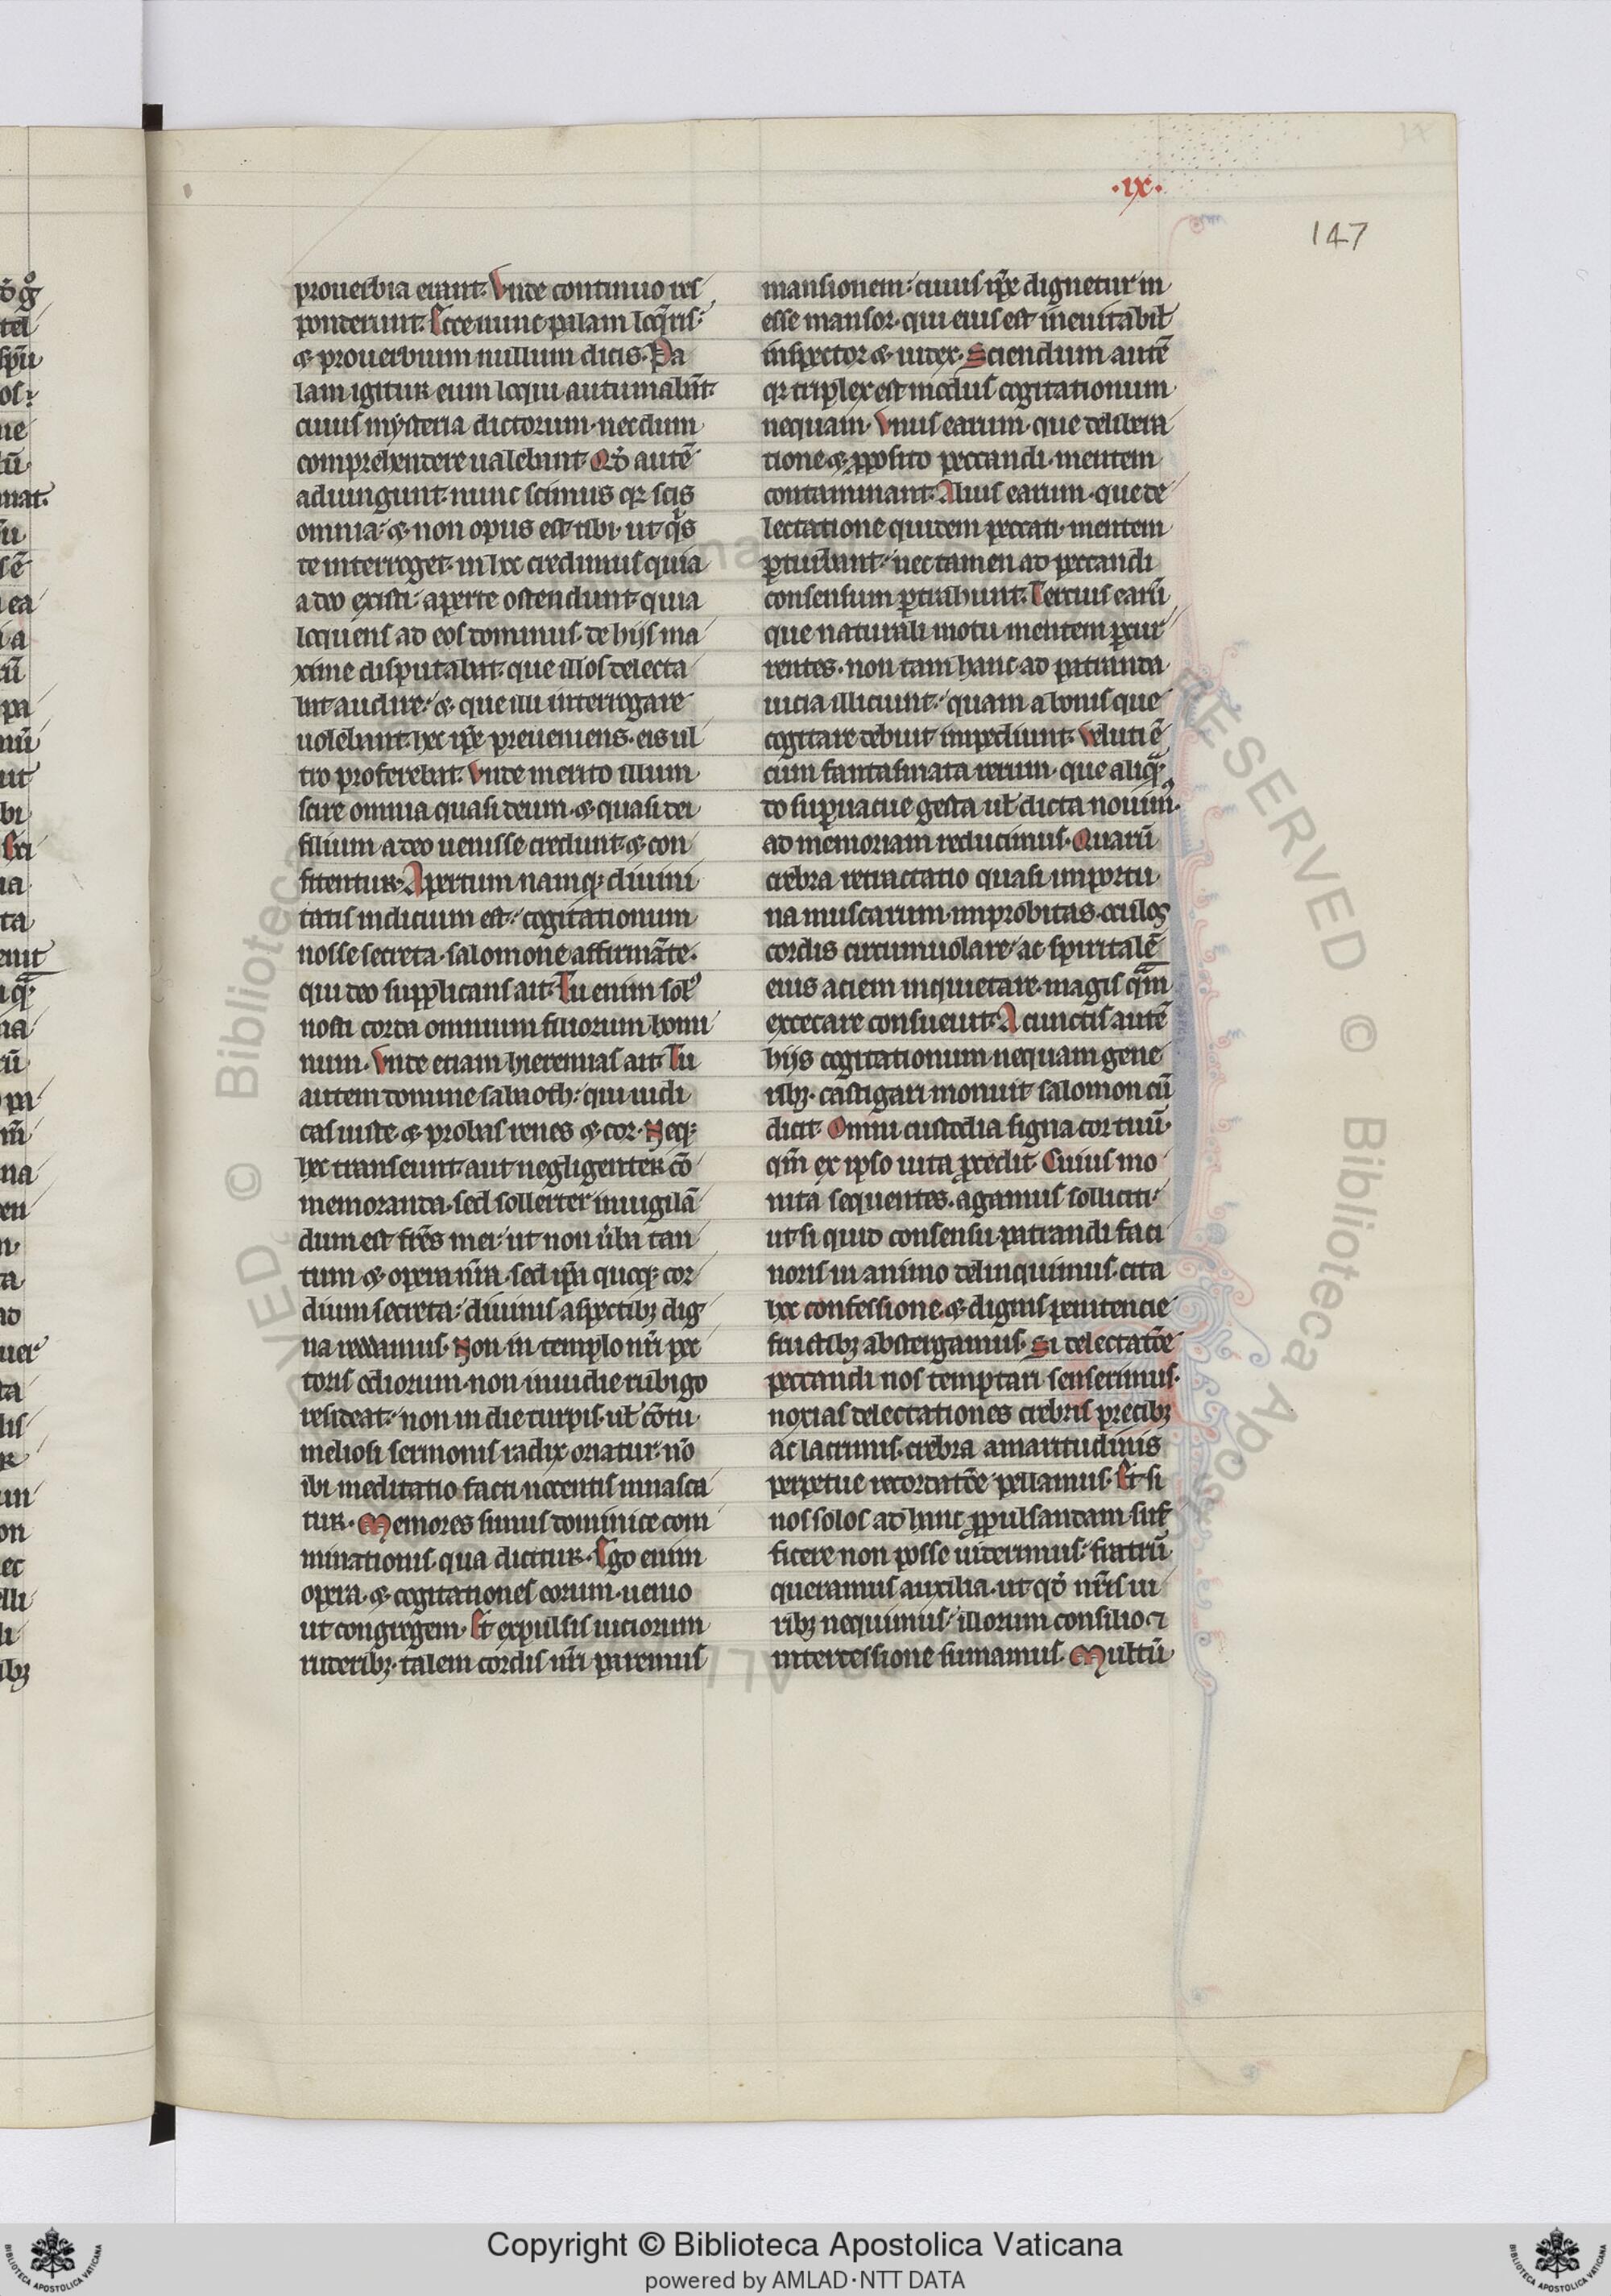 ·ix·
147
prouerbia erant. Vnde continuo res
ponderunt. Ecce nunc palam loq̄ris:
⁊ prouerbium nullum dicis. Pa
lam igitur eum loqui autumabāt.
cuius mysteria dictorum necdum
comprehendere ualebant. Qd̄ autē
adiungunt. nunc scimus qꝛ scis
omnia: ⁊ non opus est tibi ut qⁱs
te interroget. in hoc credimus quia
a deo existi: aperte ostendunt quia
loquens ad eos dominus. de hijs ma
xime disputabat. que illos delecta
bat audire: ⁊ que illi interrogare
uolebant. hec ip̄e preueniens. eis ul
tro proferebat. Vnde merito illum
scire omnia quasi deum. ⁊ quasi dei
filium a deo uenisse credunt ⁊ con
fitentur. Apertum namqꝫ diuini
tatis indicium est: cogitationum
nosse secreta. salomone affirmāte.
qui deo supplicans ait. Tu enim solꝰ
nosti corda omnium filiorum homi
num. Vnde etiam hieremias ait. Tu
autem domine sabaoth: qui iudi
cas iuste ⁊ probas renes ⁊ cor. Neqꝫ
hec transeunter aut negligenter cō
memoranda. sed sollerter inuigilā
dum est fr̄es mei: ut non ūba tan
tum ⁊ opera nr̄a. sed ip̄a quoqꝫ cor
dium secreta: diuinis aspectibꝫ dig
na reddamus. Non in templo nr̄i pec
toris odiorum. non inuidie rubigo
resideat: non inde turpis. ul̄ cōtu
meliosi sermonis radix oriatur. nō
ibi meditatio facti nocentis innasca
tur. Memores simus dominice com
minationis qua dicitur. Ego enim
opera. ⁊ cogitationes eorum. uenio
ut congregem. Et expulsis uiciorum
ruderibꝫ. talem cordis nr̄i paremus
mansionem: cuius ip̄e dignetur in
esse mansor. qui eius est īneuitabil̄
inspector ⁊ iudex. Sciendum autē
qꝛ triplex est modus cogitationum
nequam. Vnus earum. que delibera
tione ⁊ ꝓposito peccandi. mentem
contaminant. Alius earum. que de
lectatione quidem peccati. mentem
ꝑturbant: nec tamen ad peccandi
consensum ꝑtrahunt. Tercius earū
que naturali motu mentem ꝑcur
rentes. non tam hanc ad patranda
uicia illiciunt: quam a bonis que
cogitare debuit impediunt. Veluti ē
cum fantasmata rerum. que aliqⁿ
do suꝑuacue gesta ul̄ dicta nouimꝰ.
ad memoriam reducimus. Quarū
crebra retractatio quasi importu
na muscarum. improbitas. oculoꝝ
cordis circumuolare: ac spiritalē
eius aciem inquietare. magis qᵃm
excecare consueuit. A cunctis autē
hijs cogitationum nequam gene
ribꝫ. castigari monuit salomon cū
dicit. Omni custodia signa cor tuū.
qm̄ ex ipso uita ꝓcedit. Cuius mo
nita sequentes. agamus solliciti:
ut si quid consensu patrandi faci
noris in animo delinquimus. cita
hec confessione. ⁊ dignis penitencie
fructibꝫ abstergamus. Si delectatōe
peccandi nos temptari senserimus.
noxias delectationes crebris precibꝫ
ac lacrimis. crebra amaritudinis
perpetue recordatōe pellamus. Et si
nos solos ad hanc ꝓpulsandam suf
ficere non posse uiderimus: fratrū
queramus auxilia. ut qd̄ nr̄is ui
ribꝫ nequimus: illorum consilio. ⁊
intercessione sumamus. Multū
Copyright © Biblioteca Apostolica Vaticana
powered by AMLAD·NTT DATA